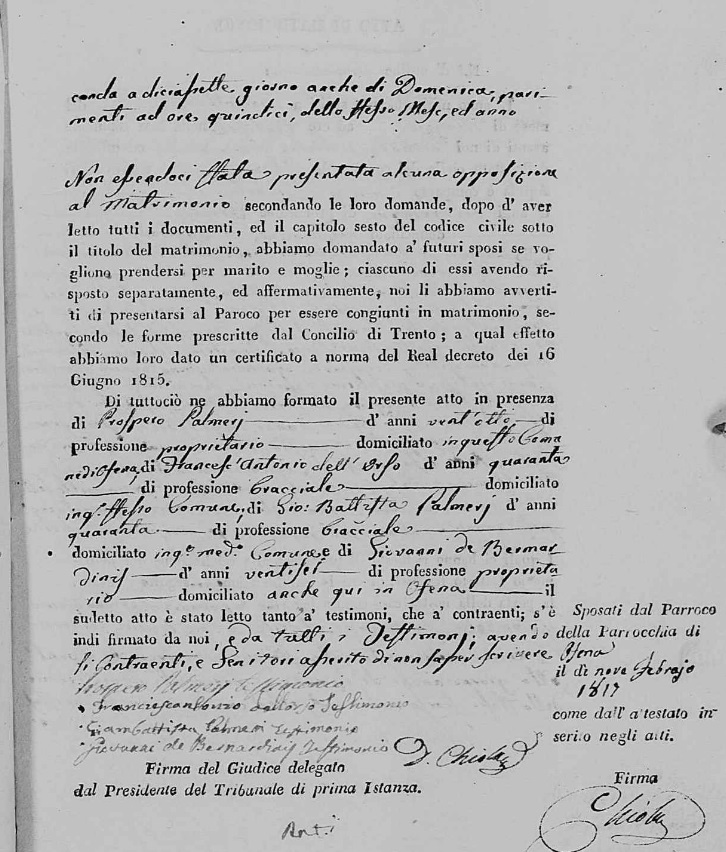 conda a diciassette giorno anche di Domenica, pari-
menti ad ore quindici, dello stesso Mese, ed anno
Non essendoci stata presentata alcuna opposizione
al Matrimonio secondando le loro domande, dopo d' aver
letto tutti i documenti, ed il capitolo sesto del codice civile sotto
il titolo del matrimonio, abbiamo domandato a' futuri sposi se vo-
gliono prendersi per marito e moglie; ciascuno di essi avendo ri-
sposto separatamente, ed affermativamente, noi li abbiamo avverti-
ti di presentarsi al Paroco per essere congiunti in matrimonio, se-
condo le forme prescritte dal Concilio di Trento; a qual effetto
abbiamo loro dato un certificato a norma del Real decreto dei 16
Giugno 1815.
Di tuttociò ne abbiamo formato il presente atto in presenza
di Prospero Palmerj d' anni vent'otto di
professione proprietario domiciliato in questo Comu
ne di Ofena, di Francesc'Antonio dell'Orso d' anni quaranta
di professione bracciale domiciliato
in q.o stesso Comune, di Gio: Battista Palmerj d' anni
quaranta di professione bracciale
domiciliato in q.o med.o Comune e di Giovanni de Bernar
dinis d' anni ventisei di professione proprieta
rio domiciliato anche qui in Ofena il
sudetto atto è stato letto tanto a' testimoni, che a' contraenti; s'è
indi firmato da noi, e da tutti i Testimonj; avendo
li Contraenti, e Genitori asserito di non saper scrivere
Prospero Palmerj testimonio
Franciescantonio dellorso Testimonio
Giambattista Palmeri Testimonio
Giovanni de Bernardinis Testimonio
D. Chiola
Firma del Giudice delegato
dal Presidente del Tribunale di prima Istanza.
Sposati dal Parroco
della Parrocchia di
Ofena
il dì nove Febrajo
1817
come dall' attestato in-
serito negli atti.
Firma
Chiola